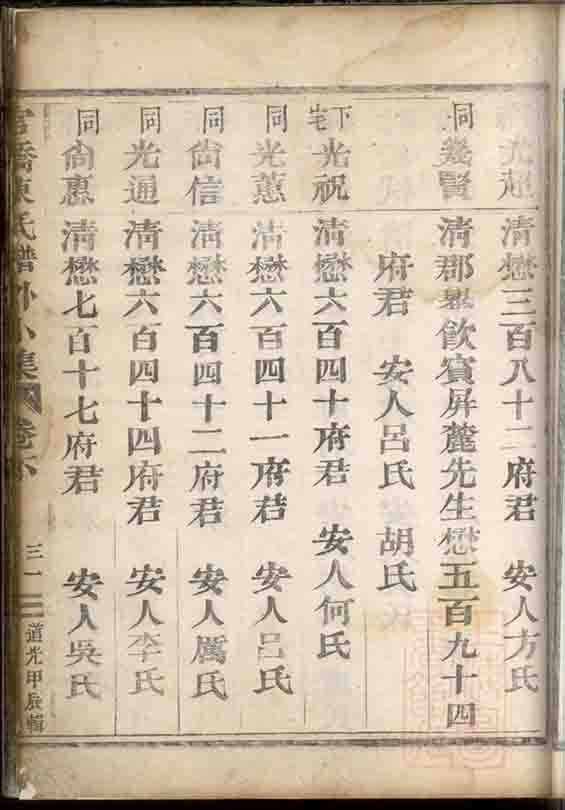 光超 清懋三百八十二府君 安人方氏
同 幾賢 清郡學飲賓屏麓先生懋五百九十四
府君 安人呂氏 胡氏
下宅 光祝 清懋六百四十府君 安人何氏
同 光蕙 清懋六百四十一府君 安人呂氏
同 尙信 清懋六百四十二府君 安人厲氏
同 光通 清懋六百四十四府君 安人李氏
同 尙惠 清懋七百十七府君 安人吳氏
官橋陳氏譜外小集 卷下 三一 道光甲辰輯